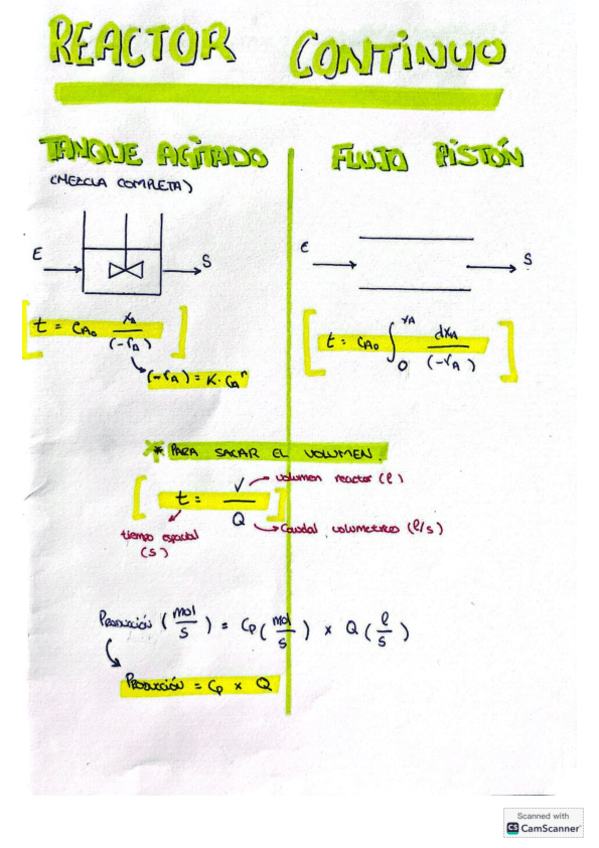 REACTOR CONTINUO
TANQUE AGITADO
(MEZCLA COMPLETA)
E
S
t = CA₀ XA / (-rA)
(-rA) = K · CAⁿ
FLUJO PISTÓN
E
S
t = CA₀ ∫₀^XA dXA / (-rA)
* PARA SACAR EL VOLUMEN.
t = V / Q
volumen reactor (l)
Caudal volumetrico (l/s)
tiempo espacial
(s)
PRODUCCIÓN (mol/s) = Cp (mol/s) x Q (l/s)
PRODUCCIÓN = Cp x Q
Scanned with
CS CamScanner